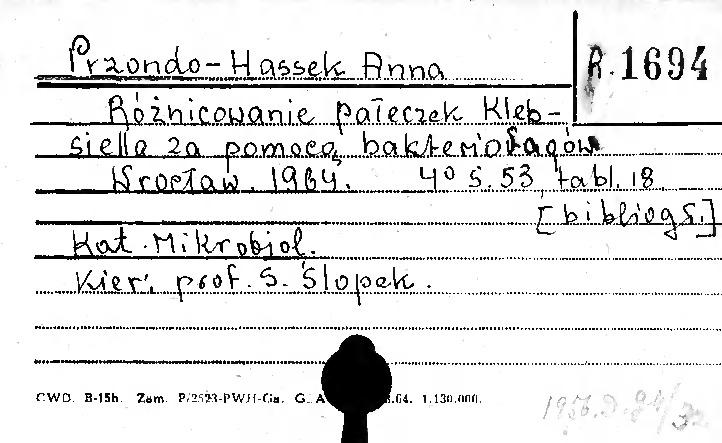 Przondo-Hassek Anna
R. 1694
Różnicowanie pałeczek Kleb-
siella za pomocą bakteriofagów
Wrocław. 1964. 4° s. 53, tabl. 18.
[bibliogr.]
Kat. Mikrobiol.
Kier: prof. S. Ślopek.
CWD. B-15h. Zam. P/2593-PWH-Ga. G. A .64. 1.130.000.